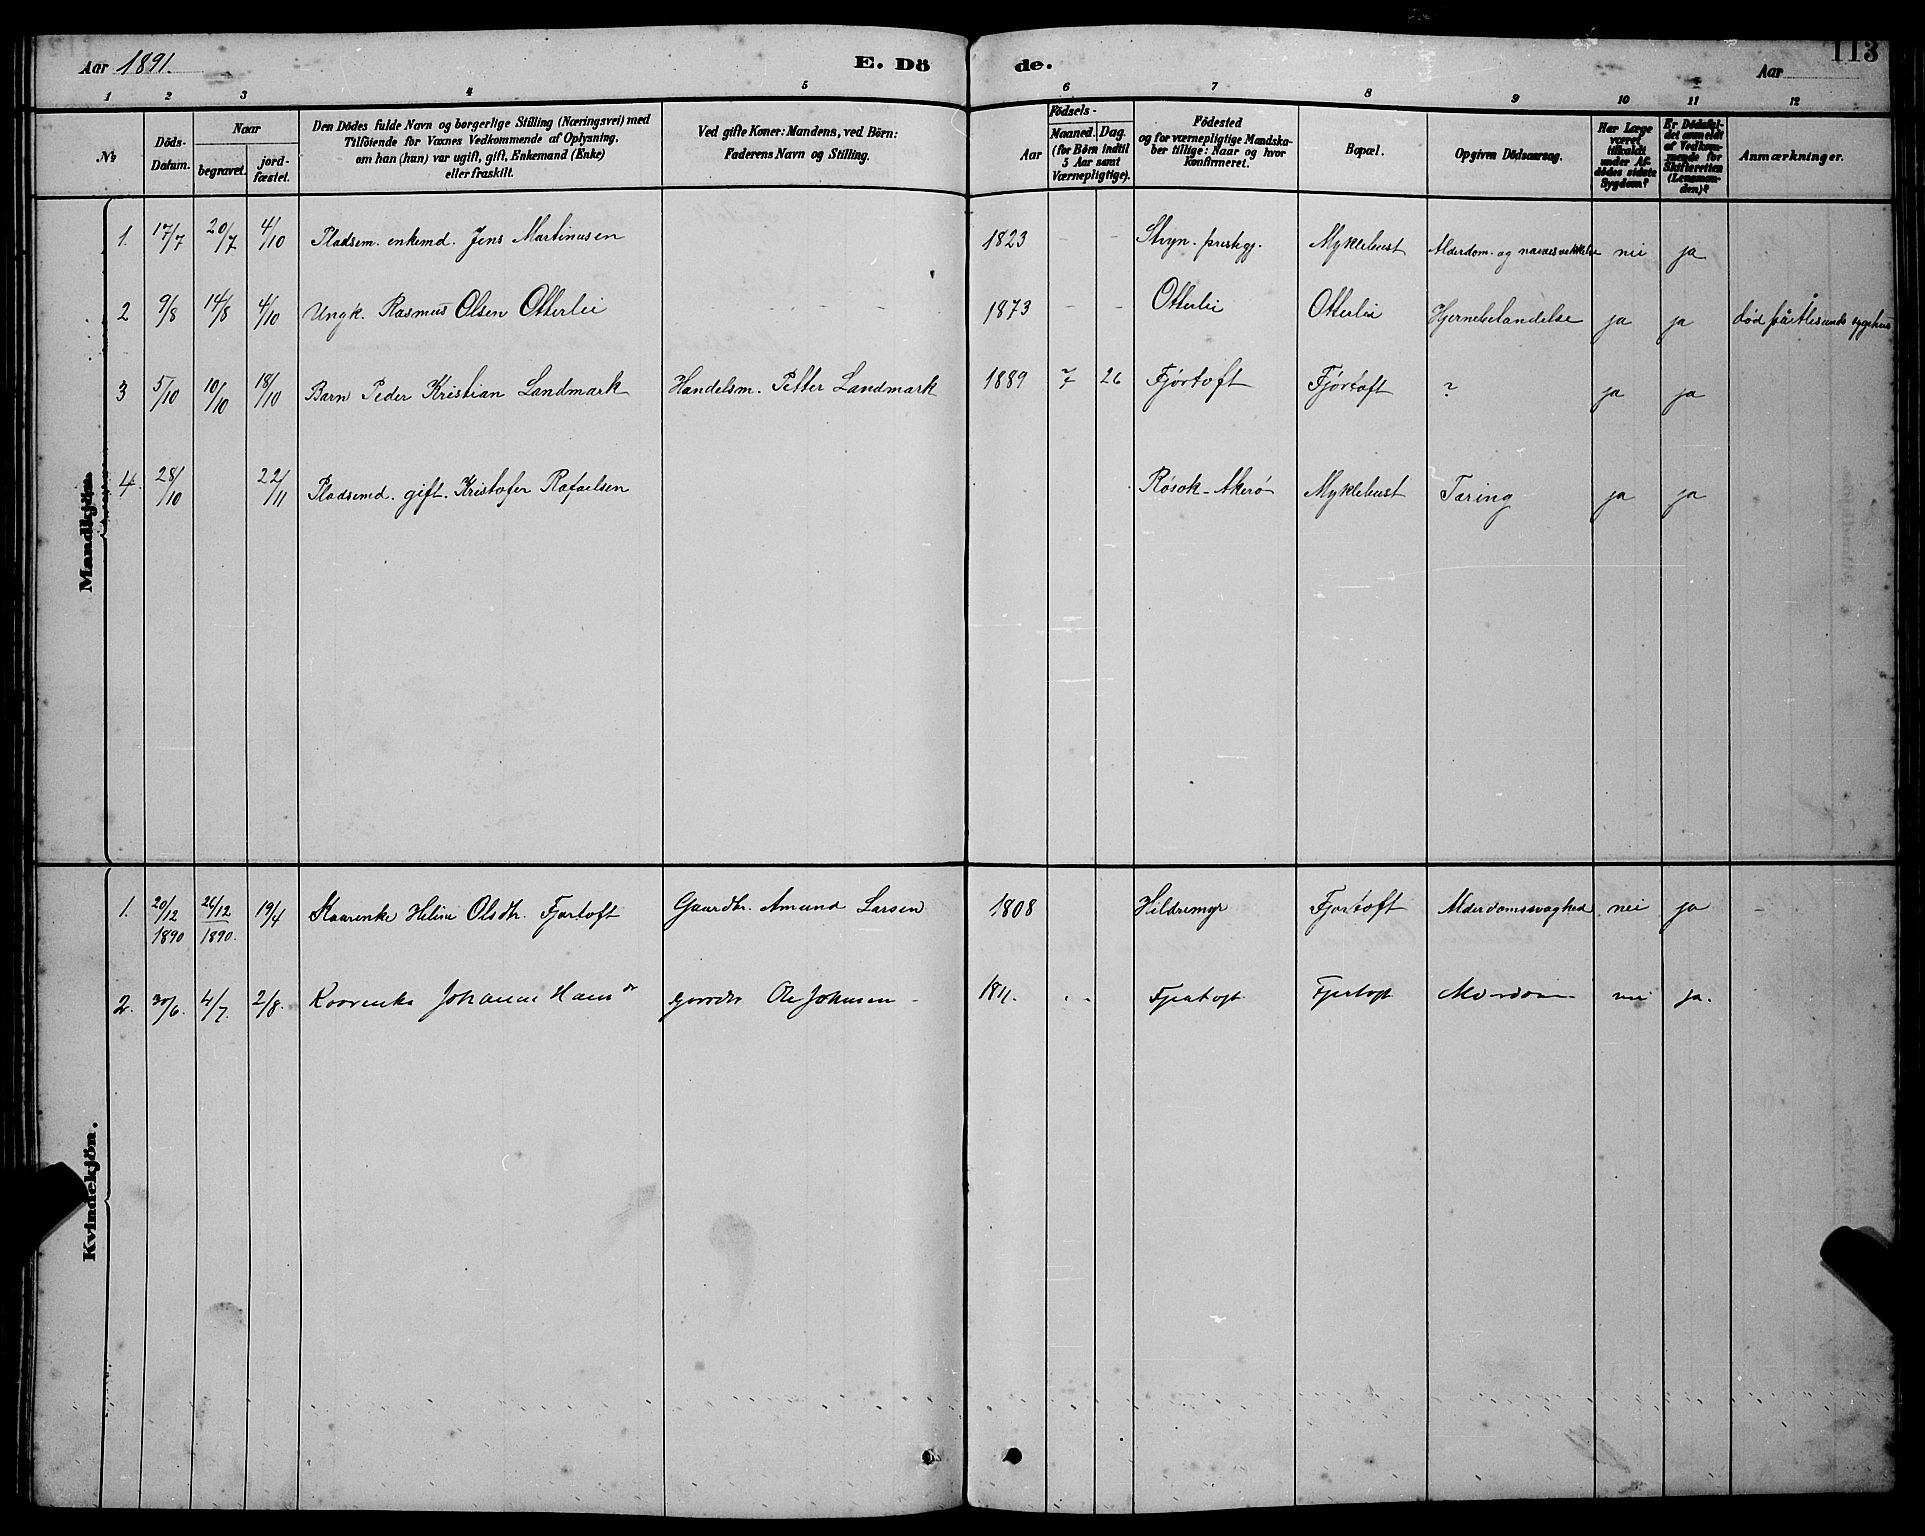 Aar 1891.
E. Dö
de.
113
Aar
1 2 3 4 5 6 7 8 9 10 11 12
No
Döds-
Datum.
Naar
begravet.
jord-
fæstet.
Den Dödes fulde Navn og borgerlige Stilling (Næringsvei) med
Tilföiende for Voxnes Vedkommende af Oplysning,
om han (hun) var ugift, gift, Enkemand (Enke)
eller fraskilt.
Ved gifte Koner: Mandens, ved Börn:
Faderens Navn og Stilling.
Födsels-
Aar
Maaned.
Dag.
(for Börn indtil
5 Aar samt
Værnepligtige).
Födested
og for værnepligtige Mandska-
ber tillige: Naar og hvor
konfirmeret.
Bopæl.
Opgiven Dödsaarsag.
Har Læge
været
tilkaldt
under Af-
dödes sidste
Sygdom?
Er Dödsfal-
det anmeldt
af Vedkom-
mende for
Skifteretten
(Lensman-
den)?
Anmærkninger.
Mandkjön.
1. 17/7 20/7 4/10 Pladsem. enkemd. Jens Martinusen 1823 - - Stryn. prestgj. Myklebust Alderdom og nei ja
2 9/8 14/8 4/10 Ungk. Rasmus Olsen Otterlei - - - 1873 - - Otterlei Otterlei Hjernebetændelse ja ja död på Ålesunds sygehus
3 5/10 10/10 18/10 Barn Peder Kristian Landmark Handelsm. Petter Landmark 1889 7 26 Fjörtoft Fjörtoft ? ja ja
4. 28/10 22/11 Pladsemd. gift. Kristofer Rafaelsen Rösok-Akerö Myklebust Tæring ja ja
Kvindekjön.
1. 20/12 1890 26/12 1890. 19/4 Kaarenke Heline Olsdtr. Fjørtoft Gaardbr. Amund Larsen 1808 Hildremyr Fjørtoft Alderdomssvaghed nei ja -
2. 30/6. 4/7. 2/8. Kaarenka Johanne Hansdr gaardbr Ole Johnsen - 1811. - - Fjørtoft Fjørtoft Alderdom nei ja.